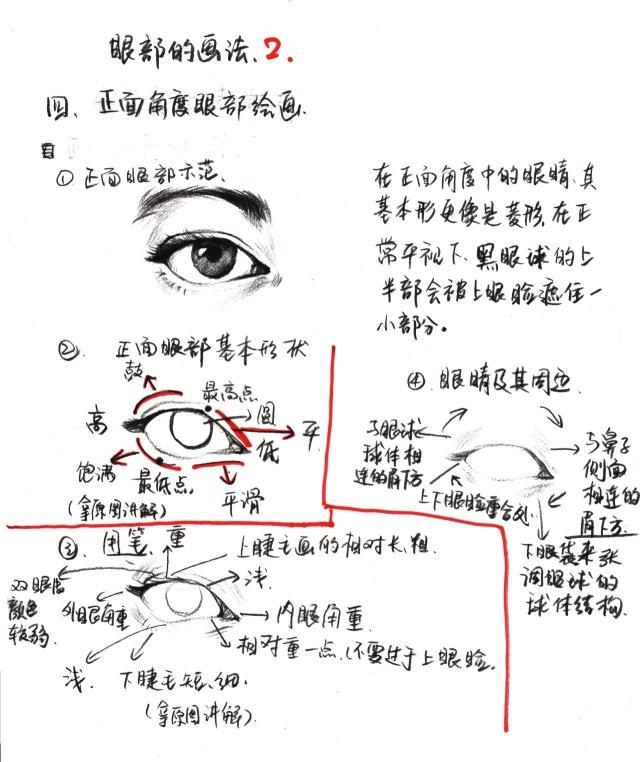 眼部的画法、2.
四、正面角度眼部绘画.
① 正面眼部示范、
在正面角度中的眼睛、其
基本形更像是菱形、在正
常平视下、黑眼球的上
半部会被上眼睑遮住一
小部分。
②、正面眼部基本形状
鼓
最高点
圆
高
低
平
饱满
最低点
平滑
(拿原图讲解)
③、用笔、
重
上睫毛画的相对长、粗
浅
双眼皮
颜色
较弱
外眼角重
内眼角重
相对重一点、(不要过于上眼睑。
浅.
下睫毛短、细.
(拿原图讲解).
④、眼睛及其周边
与眼球
球体相
连的眉下方
上下眼睑重合处
与鼻子
侧面
相连的
眉下方.
下眼袋来强
调眼球的
球体结构.